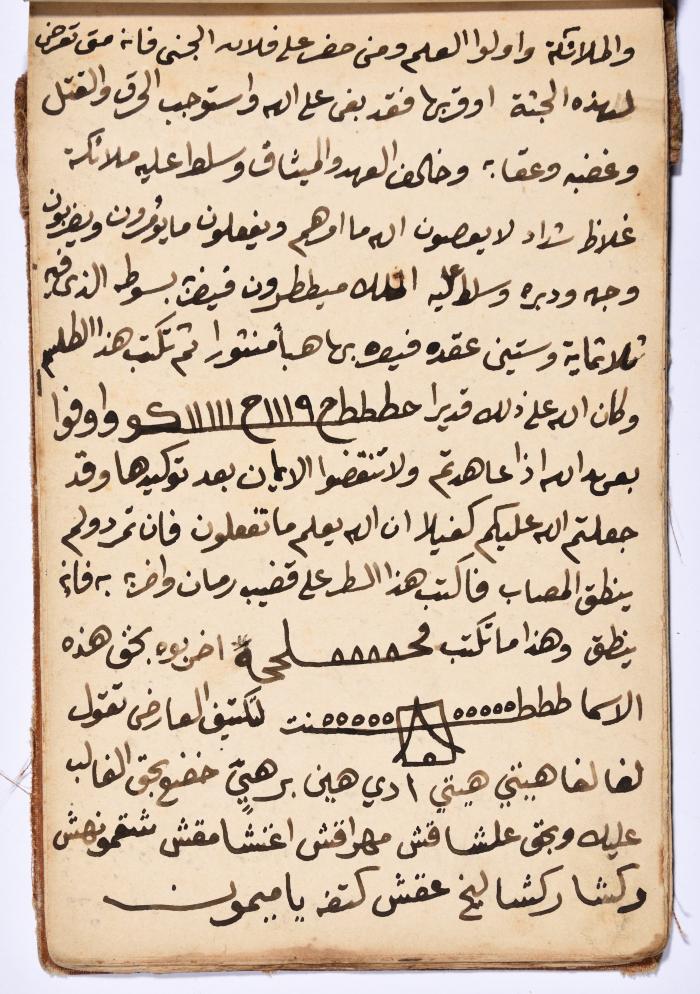 والملائكة واولوا العلم ومن حضر على فلان الجنى فانه متى تعرض
لهذه الجثة او قربها فقد بغى على الله واستوجب الحرق والقتل
وغضبه وعقابه وخالف العهد والميثاق وسلط عليه ملائكة
غلاظ شداد لا يعصون الله ما امرهم ويفعلون ما يؤمرون ويضربون
وجهه ودبره وسلط عليه الملك ميططرون بسوطه الذي فيه
ثلاثماية وستين عقده بها هبأ منثورا ثم تكتب هذا الطلسم
وكان الله على ذلك قديرا حططططح ١١١٩ح ١١١١١١ واوفوا
بعهد الله اذا عاهدتم ولا تنقضوا الايمان بعد توكيدها وقد
جعلتم الله عليكم كفيلا ان الله يعلم ما تفعلون فان تمرد ولم
ينطق المصاب فاكتب هذا السطر على قضيب رمان واضربه به فانه
ينطق وهذا ما تكتب ٨٨٨٨ اضربوه بحق هذه
الاسما طططط ٥٥٥٥٥ ٥٥٥٥٥ لتكتيف العارض تقول
لغا لغا هيتي هيتي ادي هين برهين خضع بحق الغالب
عليك وبحق علشاقش مهراقش اغشامقش شقمونهش
ركشا ركشا ليخ عقش كتفه يا ميمون